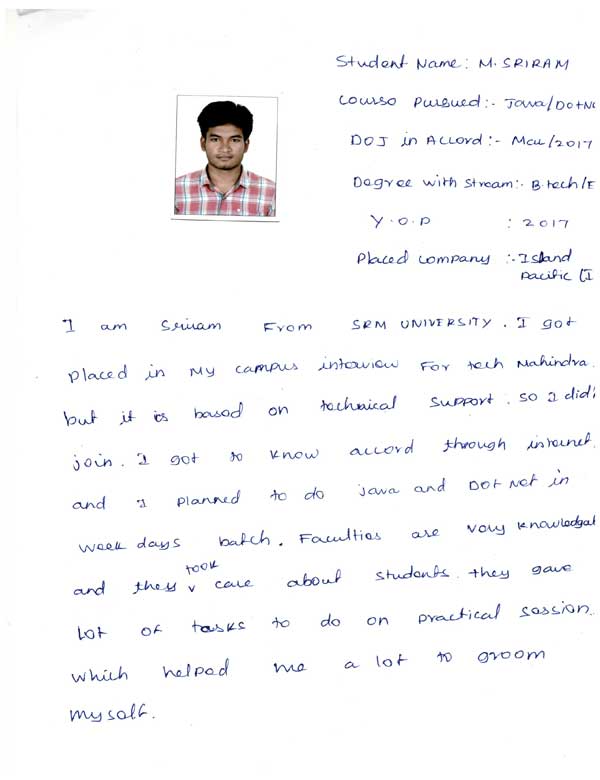 Student Name: M. SRIRAM
Course Pursued:- Java/DOTN
DOJ in Accord:- May/2017
Degree with Stream:- B.tech/E
Y.O.P : 2017
Placed Company :- Island
Pacific (I
I am Sriram From SRM UNIVERSITY. I got
placed in My campus interview For tech Mahindra.
but it is based on technical Support. So I did
join. I got to know accord through internet.
and I planned to do java and Dot Net in
week days batch. Faculties are very knowledgab
and they took care about students. they gave
lot of tasks to do on practical session.
which helped me a lot to groom
myself.